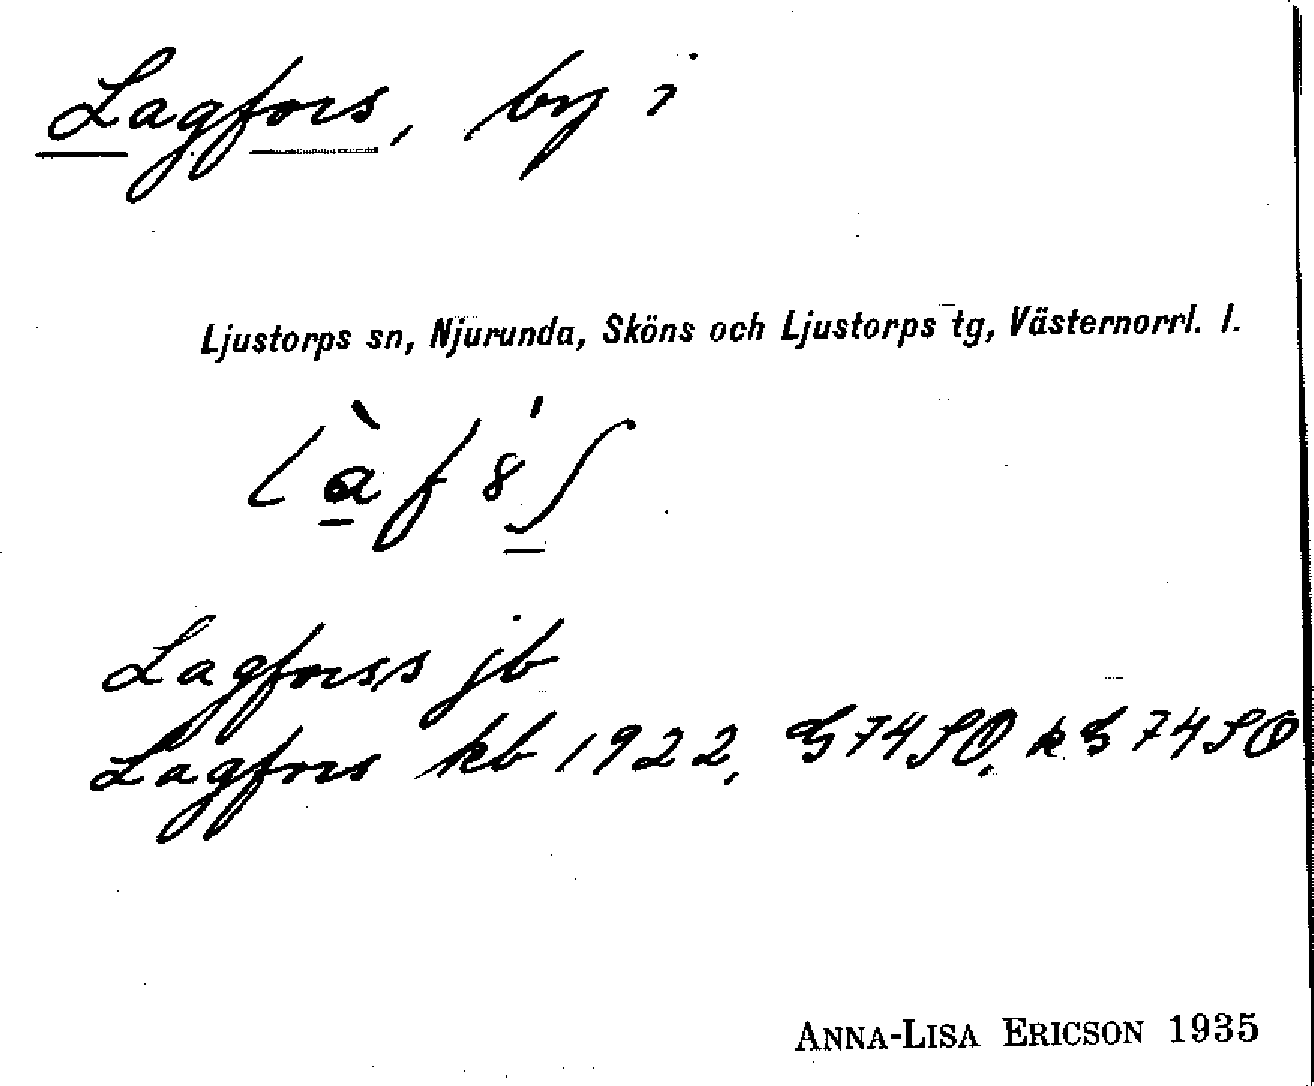 Lagfors, by i
Ljustorps sn, Njurunda, Sköns och Ljustorps tg, Västernorrl. l.
Lagforss jb
Lagfors kb 1922, G 74 SO, k G 74 SO
ANNA-LISA ERICSON 1935